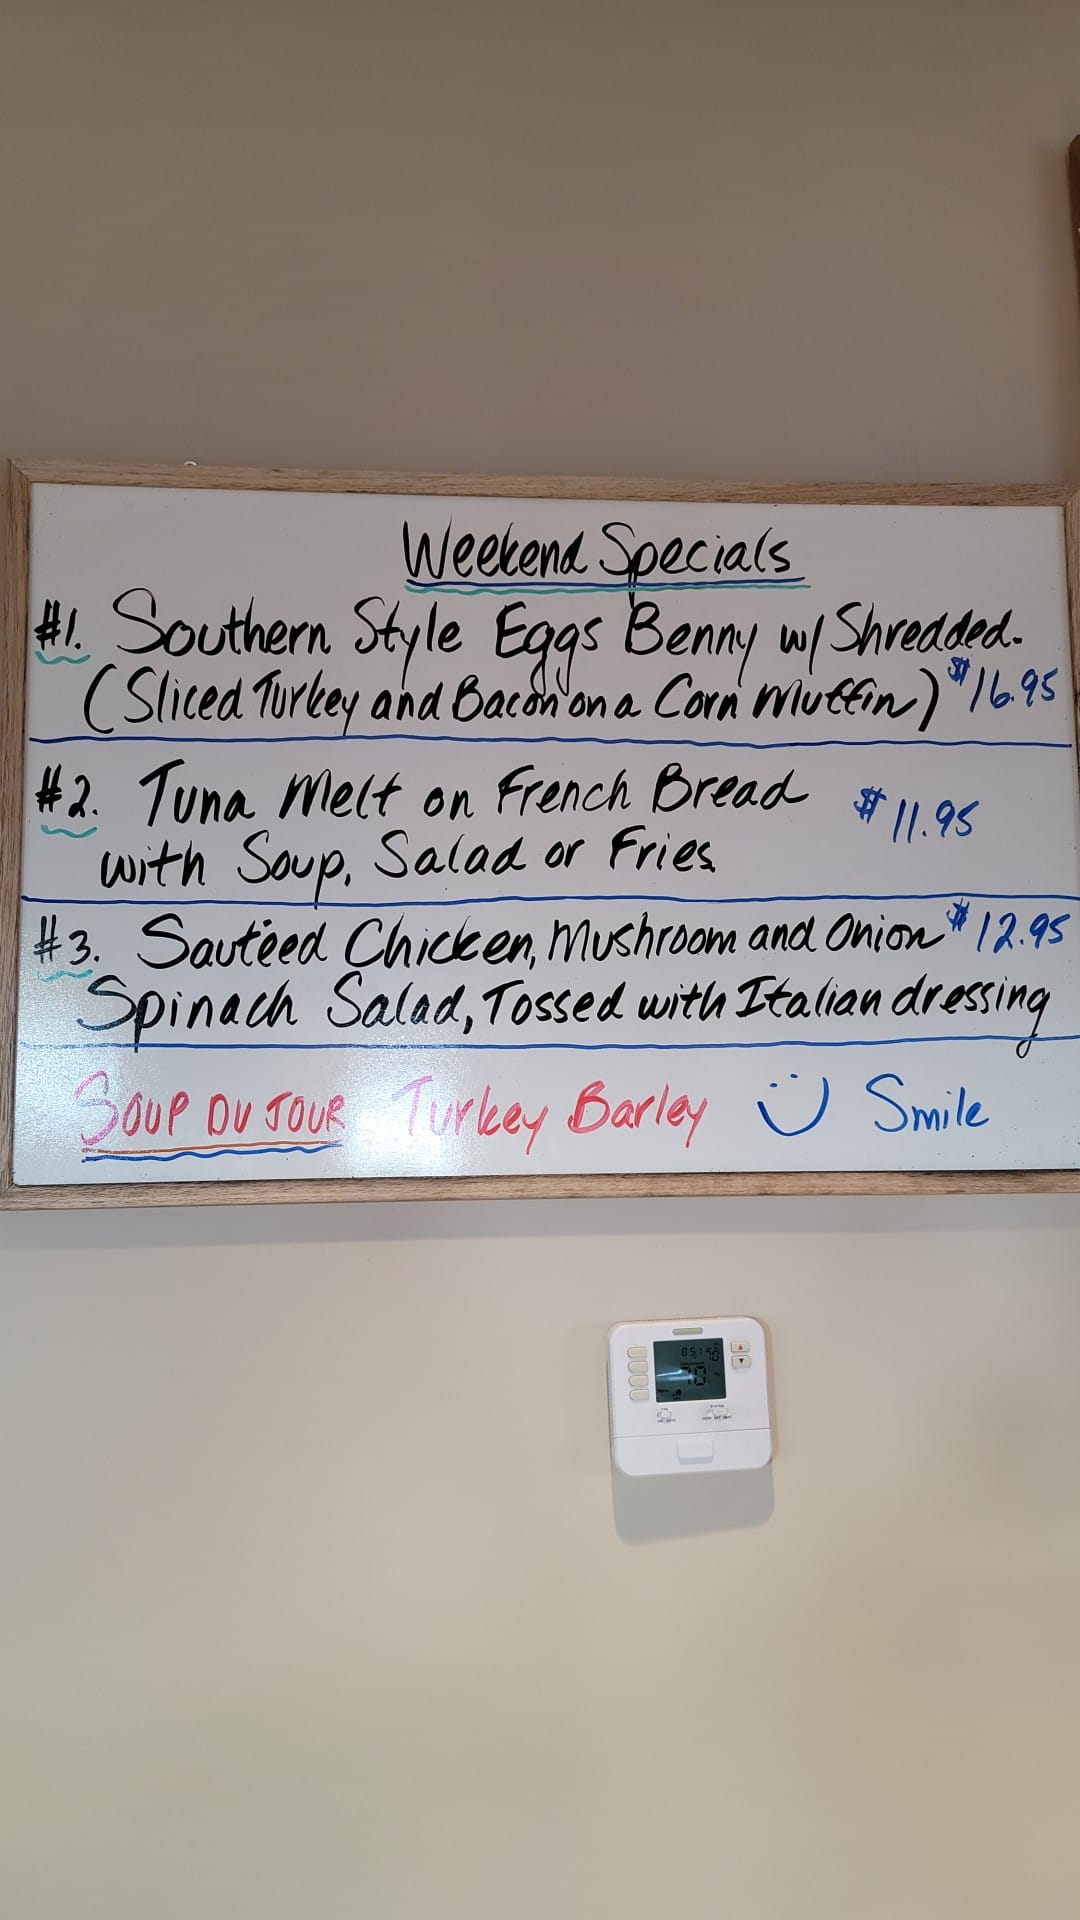 Weekend Specials
#1. Southern Style Eggs Benny w/ Shredded.
(Sliced Turkey and Bacon on a Corn Muffin) $16.95
#2. Tuna Melt on French Bread $11.95
with Soup, Salad or Fries
#3. Sautéed Chicken, Mushroom and Onion $12.95
Spinach Salad, Tossed with Italian dressing
SOUP DU JOUR Turkey Barley Smile